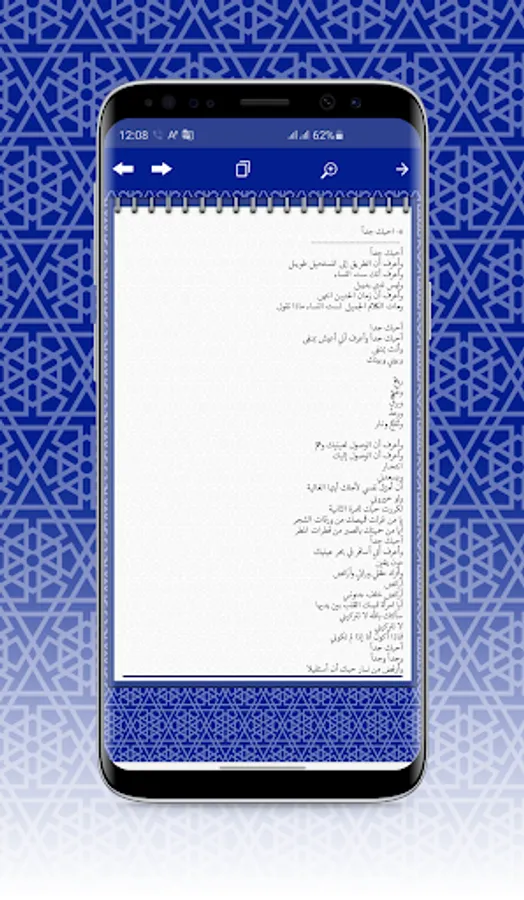 12:08
62%
٥- احبك جداً
أحبك جداً
وأعرف أن الطريق إلى المستحيل طويـل
وأعرف أنك ست النساء
وليس لدي بديـل
وأعرف أن زمان الحنين انتهى
ومات الكلام الجميل
لست النساء ماذا نقول
أحبك جدا
أحبك جداً وأعرف أني أعيش بمنفى
وأنت بمنفى
وبيني وبينك
ريح
وغيم
وبرق
ورعد
وثلج ونـار
وأعرف أن الوصول لعينيك وهم
وأعرف أن الوصول إليك
انتحـار
ويسعدني
أن أمزق نفسي لأجلك أيتها الغالية
ولو خيروني
لكررت حبك للمرة الثانية
يا من غزلت قميصك من ورقات الشجر
أيا من حميتك بالصبر من قطرات المطر
أحبك جداً
وأعرف أني أسافر في بحر عينيك
دون يقين
وأترك عقلي ورائي وأركض
أركض
أركض خلف جنوني
أيا امرأة تمسك القلب بين يديها
سألتك بالله لا تتركيني
لا تتركيني
فماذا أكون أنا إذا لم تكوني
أحبك جداً
وجداً وجداً
وأرفض من نــار حبك أن أستقيلا